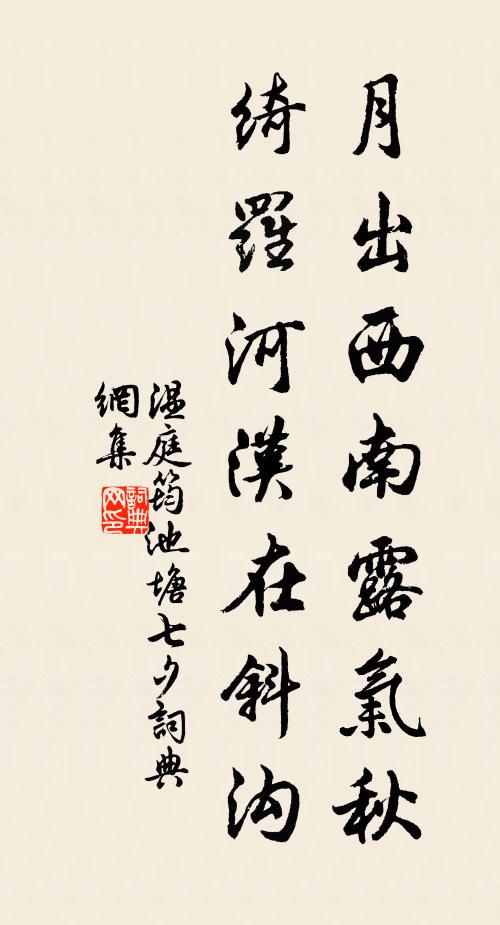 月出西南露氣秋
綺羅河漢在斜沟
温庭筠池塘七夕詞典
網集
詞典
网印